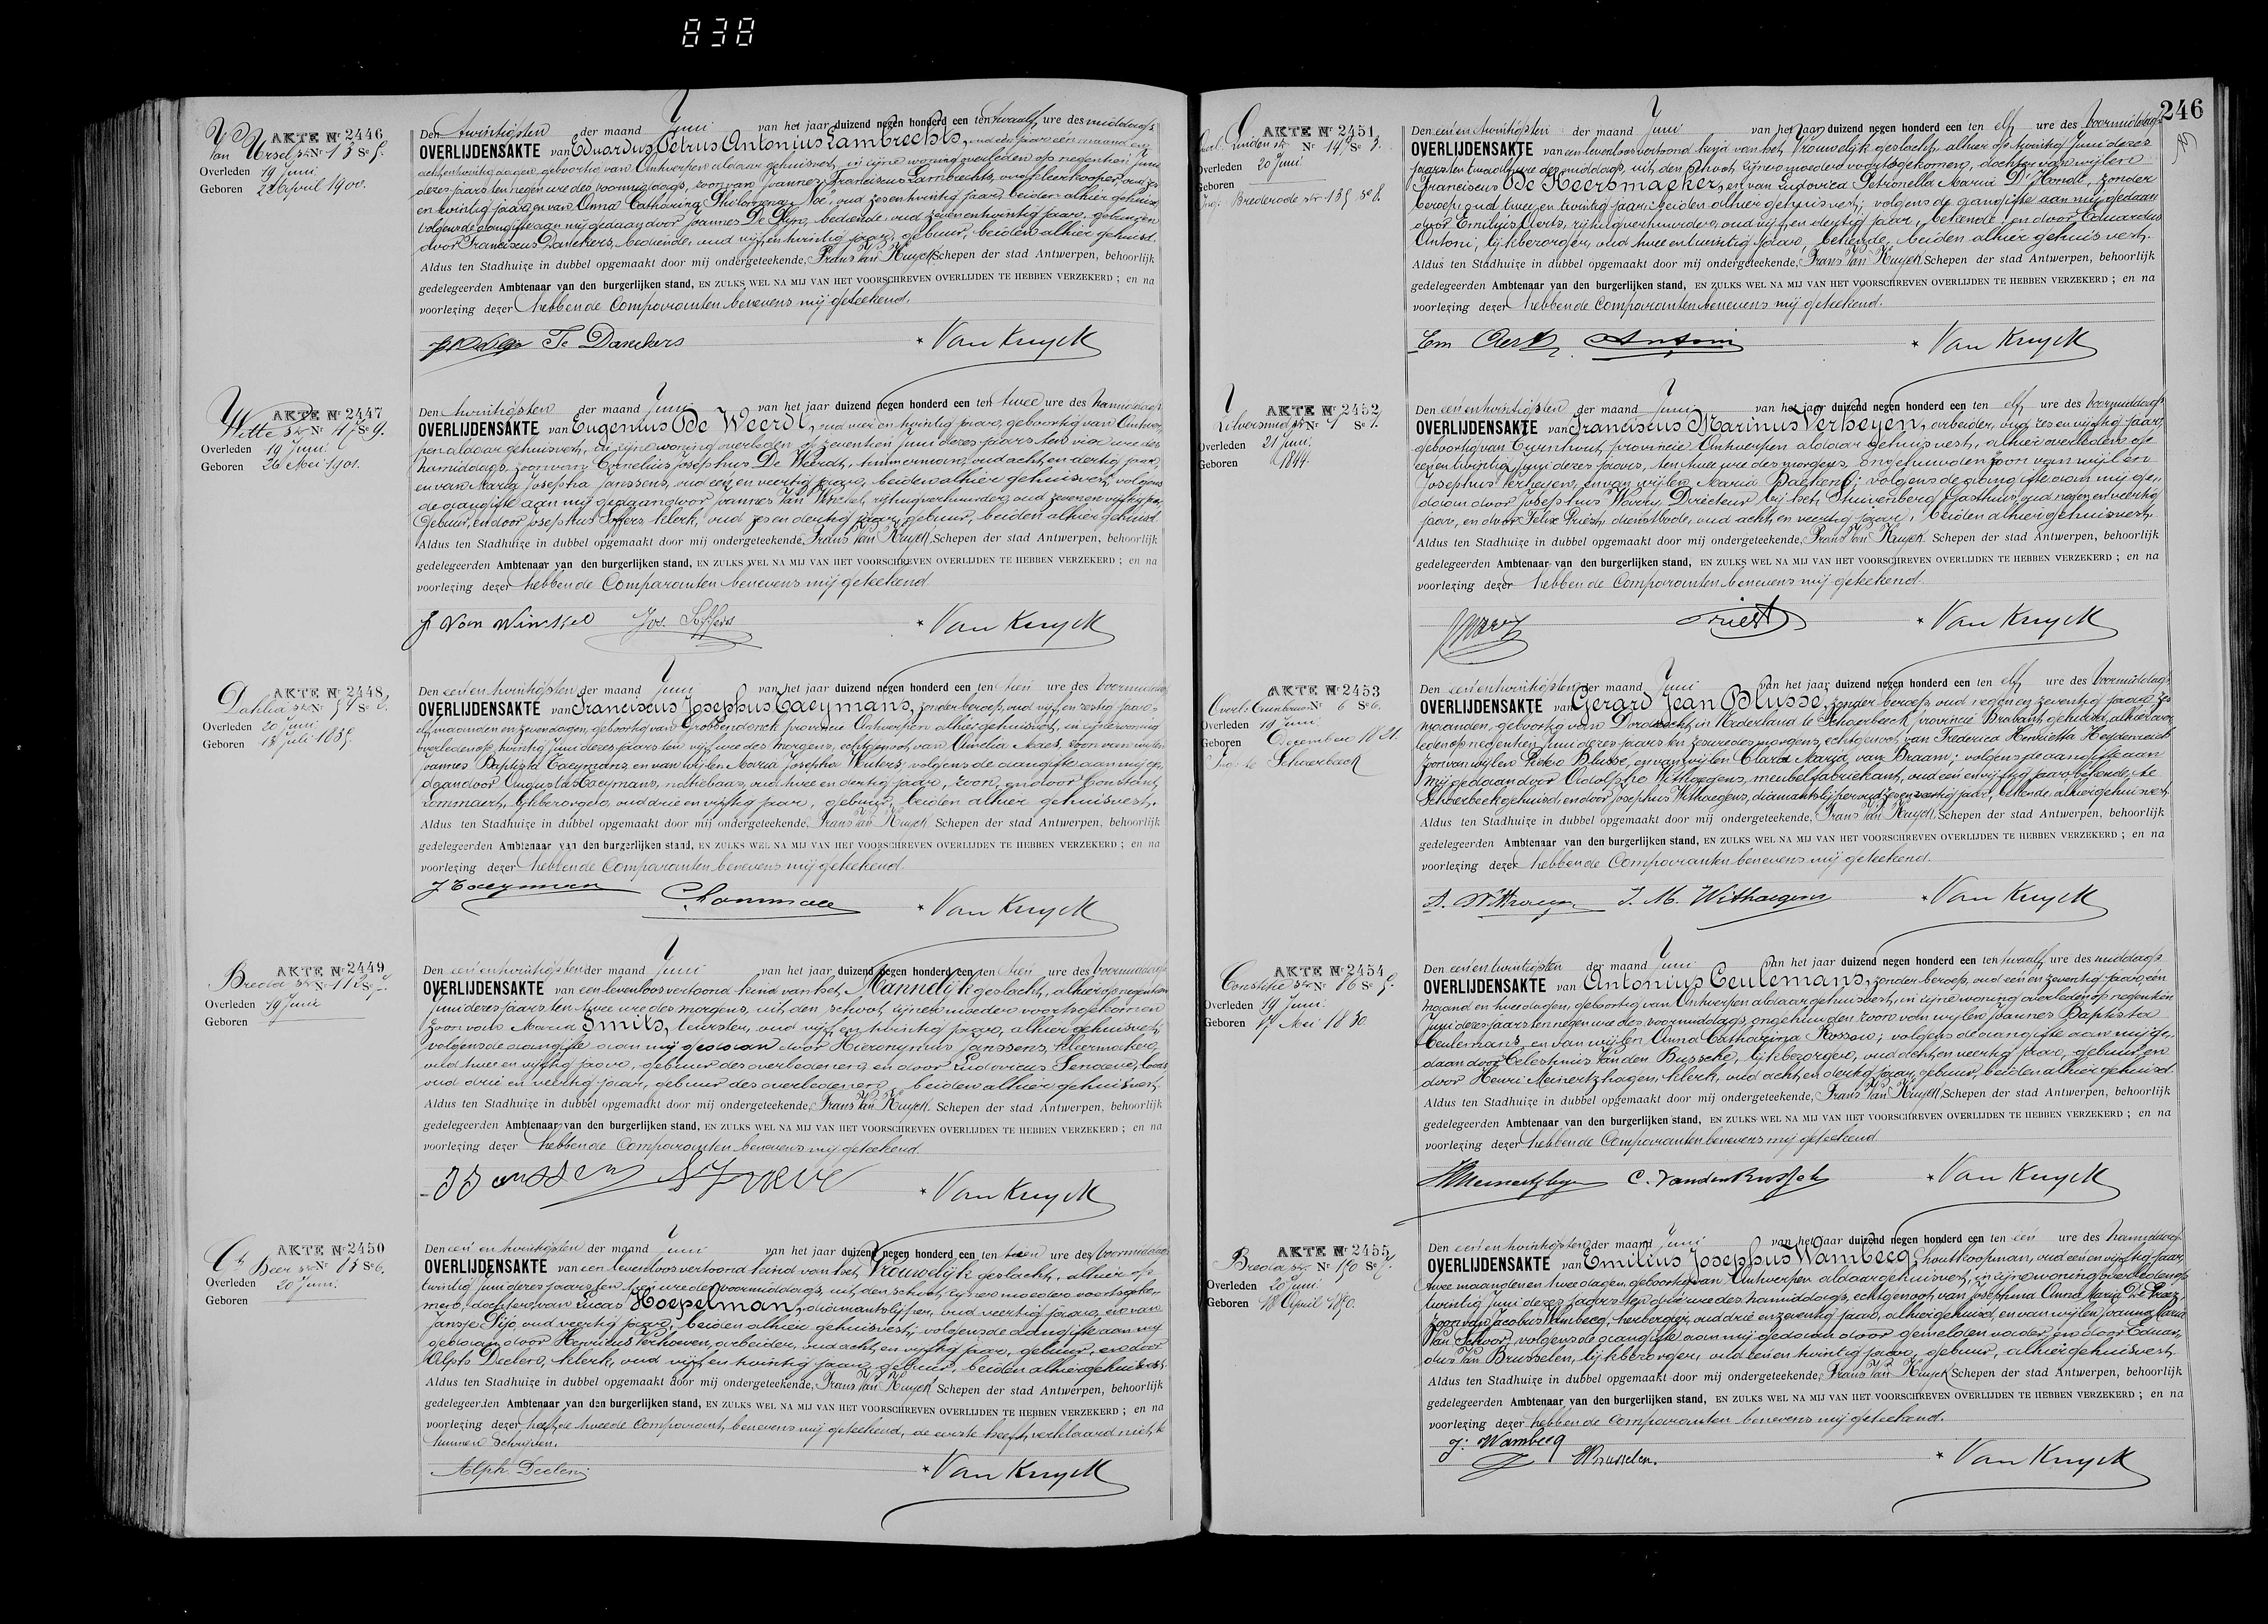 838
AKTE Nr 2446
Van Ursel str Nr 13 Se 5.
Overleden 19 Juni
Geboren 22 April 1900.
Den twintigsten der maand Juni van het jaar duizend negen honderd een ten twaalf ure des middags
OVERLIJDENSAKTE van Eduardus Petrus Antonius Lambrechts, oud een jaar een maand en
achtentwintig dagen, geboortig van Antwerpen aldaar gehuisvest, in zijne woning overleden op negentien Juni
dezes jaars ten negen ure des voormiddags, zoon van Joannes Franciscus Lambrechts, oud zes
en twintig jaar, en van Anna Catharina Philomena Noë, oud zesentwintig jaar, beiden alhier gehuisd,
volgens de aangifte aan mij gedaan door Joannes De Rijn, bediende, oud zevenentwintig jaar, gebuur, en
door Franciscus Danckers, bediende, oud vijf en twintig jaar, gebuur, beiden alhier gehuisd.
Aldus ten Stadhuize in dubbel opgemaakt door mij ondergeteekende, Frans Van Kuyck Schepen der stad Antwerpen, behoorlijk
gedelegeerden Ambtenaar van den burgerlijken stand, EN ZULKS WEL NA MIJ VAN HET VOORSCHREVEN OVERLIJDEN TE HEBBEN VERZEKERD ; en na
voorlezing dezer hebben de Comparanten benevens mij geteekend.
Danckers Van Kuyck
AKTE Nr 2447
Witte str Nr 47 Se 9.
Overleden 19 Juni
Geboren 26 Mei 1901.
Den twintigsten der maand Juni van het jaar duizend negen honderd een ten twee ure des namiddags
OVERLIJDENSAKTE van Eugenius De Weerdt, oud vier en twintig dagen, geboortig van Antwer
pen aldaar gehuisvest, in zijne woning overleden op Juni dezes jaars ten vier ure des
namiddags, zoon van Cornelius Josephus De Weerdt, timmerman, oud acht en dertig jaar,
en van Maria Josepha Janssens, oud een en veertig jaar, beiden alhier gehuisvest, volgens
de aangifte aan mij gedaan door Joannes Van Winckel, rijtuigverhuurder, oud zeven en vijftig jaar,
gebuur, en door Josephus Soffers, klerk, oud zes en dertig jaar, gebuur, beiden alhier gehuisd.
Aldus ten Stadhuize in dubbel opgemaakt door mij ondergeteekende, Frans Van Kuyck Schepen der stad Antwerpen, behoorlijk
gedelegeerden Ambtenaar van den burgerlijken stand, EN ZULKS WEL NA MIJ VAN HET VOORSCHREVEN OVERLIJDEN TE HEBBEN VERZEKERD ; en na
voorlezing dezer hebben de Comparanten benevens mij geteekend
J Van Winckel Jos. Soffers Van Kuyck
AKTE Nr 2448
Dahlia str Nr
Overleden 20 Juni
Geboren 13 Juli 1835.
Den een en twintigsten der maand Juni van het jaar duizend negen honderd een ten tien ure des voormiddags
OVERLIJDENSAKTE van Franciscus Josephus Caeymans, zonder beroep, oud vijf en zestig jaar
elf maanden en zeven dagen, geboortig van Grobbendonck provincie Antwerpen alhier gehuisvest, in zijne woning
overleden op twintig Juni dezes jaars ten vijf ure des morgens, echtgenoot van Amelia Maes, zoon van wijlen
Joannes Baptista Caeymans, en van wijlen Maria Josepha Wouters; volgens de aangifte aan mij ge-
daan door Augustus Caeymans, natiebaas, oud twee en dertig jaar, zoon, en door Constant
Lommaert, lijkbezorger, oud drie en vijftig jaar, gebuur, beiden alhier gehuisvest.
Aldus ten Stadhuize in dubbel opgemaakt door mij ondergeteekende, Frans Van Kuyck Schepen der stad Antwerpen, behoorlijk
gedelegeerden Ambtenaar van den burgerlijken stand, EN ZULKS WEL NA MIJ VAN HET VOORSCHREVEN OVERLIJDEN TE HEBBEN VERZEKERD ; en na
voorlezing dezer hebben de Comparanten benevens mij geteekend.
Caeymans Van Kuyck
AKTE Nr 2449
Breda str Nr
Overleden 19 Juni
Geboren
Den een en twintigsten der maand Juni van het jaar duizend negen honderd een ten tien ure des voormiddags
OVERLIJDENSAKTE van een levenloos vertoond kind van het Mannelijk geslacht, alhier op negentien
Juni dezes jaars ten twee ure des morgens, uit den schoot zijner moeder voortsgekomen
zoon van Maria Smits, leurster, oud vijf en twintig jaar, alhier gehuisvest,
volgens de aangifte aan mij gedaan door Hieronymus Janssens, kleermaker,
oud twee en vijftig jaar, gebuur des overledenen, en door Ludovicus
oud drie en veertig jaar, gebuur des overledenen, beiden alhier gehuisvest
Aldus ten Stadhuize in dubbel opgemaakt door mij ondergeteekende, Frans Van Kuyck Schepen der stad Antwerpen, behoorlijk
gedelegeerden Ambtenaar van den burgerlijken stand, EN ZULKS WEL NA MIJ VAN HET VOORSCHREVEN OVERLIJDEN TE HEBBEN VERZEKERD ; en na
voorlezing dezer hebben de Comparanten benevens mij geteekend
Van Kuyck
AKTE Nr 2450
Beer str Nr 83 Se 6.
Overleden 20 Juni.
Geboren
Den een en twintigsten der maand Juni van het jaar duizend negen honderd een ten tien ure des voormiddags
OVERLIJDENSAKTE van een levenloos vertoond kind van het Vrouwelijk geslacht, alhier op
twintig Juni dezes jaars ten tien ure des voormiddags, uit den schoot zijner moeder voortsgeko-
men, dochter van Lucas Hoepelman, diamantslijper, oud veertig jaar, en van
Jansje Pijo, oud veertig jaar, beiden alhier gehuisvest; volgens de aangifte aan mij
gedaan door Henricus Verhoeven, arbeider, oud acht en vijftig jaar, gebuur, en door
Alph Declerc, klerk, oud vijf en twintig jaar, gebuur, beiden alhier gehuisvest
Aldus ten Stadhuize in dubbel opgemaakt door mij ondergeteekende, Frans Van Kuyck Schepen der stad Antwerpen, behoorlijk
gedelegeerden Ambtenaar van den burgerlijken stand, EN ZULKS WEL NA MIJ VAN HET VOORSCHREVEN OVERLIJDEN TE HEBBEN VERZEKERD ; en na
voorlezing dezer heeft de tweede Comparant, benevens mij geteekend, de eerste heeft verklaard niet te
kunnen schrijven.
Alph. Van Kuyck
246
AKTE Nr 2451
Linden str Nr 14 Se 3.
Overleden 20 Juni
Geboren
Brederode str 135 Se 8.
Den een en twintigsten der maand Juni van het jaar duizend negen honderd een ten elf ure des voormiddags
OVERLIJDENSAKTE van een levenloos vertoond kind van het Vrouwelijk geslacht, alhier op twintig Juni dezes
jaars ten twaalf ure des middags, uit den schoot zijner moeder voortsgekomen, dochter van wijlen
Franciscus De Keersmaeker, en van Ludovica Petronella Maria D'Hondt, zonder
beroep, oud twee en twintig jaar, beiden alhier gehuisvest; volgens de aangifte aan mij gedaan
door Emilius Aerts, rijtuigverhuurder, oud vijf en dertig jaar, bekende, en door Eduardus
Antoni, lijkbezorger, oud twee en twintig jaar, bekende, beiden alhier gehuisvest.
Aldus ten Stadhuize in dubbel opgemaakt door mij ondergeteekende, Frans Van Kuyck Schepen der stad Antwerpen, behoorlijk
gedelegeerden Ambtenaar van den burgerlijken stand, EN ZULKS WEL NA MIJ VAN HET VOORSCHREVEN OVERLIJDEN TE HEBBEN VERZEKERD ; en na
voorlezing dezer hebben de Comparanten benevens mij geteekend.
Em Aerts Antoni Van Kuyck
AKTE Nr 2452
Zilversmid str Nr Se 7.
Overleden 21 Juni
Geboren 1844.
Den een en twintigsten der maand Juni van het jaar duizend negen honderd een ten elf ure des voormiddags
OVERLIJDENSAKTE van Franciscus Marinus Verheyen, arbeider, oud zes en vijftig jaar,
geboortig van Turnhout, provincie Antwerpen aldaar gehuisvest, alhier overleden op
een en twintig Juni dezes jaars, ten twee ure des morgens, ongehuwden zoon van wijlen
Josephus Verheyen, en van wijlen Maria; volgens de aangifte aan mij ge-
daan door Josephus Wavry, Directeur bij het Stuivenberg Gasthuis, oud negen en veertig
jaar, en door Felix Priest, dienstbode, oud acht en veertig jaar, beiden alhier gehuisvest.
Aldus ten Stadhuize in dubbel opgemaakt door mij ondergeteekende, Frans Van Kuyck Schepen der stad Antwerpen, behoorlijk
gedelegeerden Ambtenaar van den burgerlijken stand, EN ZULKS WEL NA MIJ VAN HET VOORSCHREVEN OVERLIJDEN TE HEBBEN VERZEKERD ; en na
voorlezing dezer hebben de Comparanten benevens mij geteekend.
Priest Van Kuyck
AKTE Nr 2453
Nr 6 Se 6.
Overleden 19 Juni
Geboren December 1821.
Schaerbeek
Den een en twintigsten der maand Juni van het jaar duizend negen honderd een ten elf ure des voormiddags
OVERLIJDENSAKTE van Gerard Jean Blussé, zonder beroep, oud negen en zeventig jaar zes
maanden, geboortig van Dordrecht in Nederland te Schaerbeek provincie Brabant gehuisd, alhier over-
leden op negentien Juni dezes jaars ten zes ure des morgens, echtgenoot van Frederica Henrietta Heydenreich
zoon van wijlen Pieter Blussé, en van wijlen Clara Maria van Braam; volgens de aangifte aan
mij gedaan door Adolphe Withaegens, meubelfabriekant, oud een en vijftig jaar, bekende, te
Schaerbeek gehuisd, en door Josephus Withaegens, diamantslijper, oud zes en veertig jaar, bekende, alhier gehuisvest
Aldus ten Stadhuize in dubbel opgemaakt door mij ondergeteekende, Frans Van Kuyck Schepen der stad Antwerpen, behoorlijk
gedelegeerden Ambtenaar van den burgerlijken stand, EN ZULKS WEL NA MIJ VAN HET VOORSCHREVEN OVERLIJDEN TE HEBBEN VERZEKERD ; en na
voorlezing dezer hebben de Comparanten benevens mij geteekend.
J. M. Withaegens Van Kuyck
AKTE Nr 2454
Nr 86 Se 5.
Overleden 19 Juni
Geboren 17 Mei 1830.
Den een en twintigsten der maand Juni van het jaar duizend negen honderd een ten twaalf ure des middags
OVERLIJDENSAKTE van Antonius Ceulemans, zonder beroep, oud een en zeventig jaar, een
maand en twee dagen, geboortig van Antwerpen aldaar gehuisvest, in zijne woning overleden op negentien
Juni dezes jaars ten negen ure des voormiddags, ongehuwden zoon van wijlen Joannes Baptista
Ceulemans, en van wijlen Anna Catharina Rossou; volgens de aangifte aan mij ge-
daan door Celestinus Van den Bussche, lijkbezorger, oud acht en veertig jaar, gebuur, en
door Henri Meinertzhagen, klerk, oud acht en dertig jaar, gebuur, beiden alhier gehuisd.
Aldus ten Stadhuize in dubbel opgemaakt door mij ondergeteekende, Frans Van Kuyck Schepen der stad Antwerpen, behoorlijk
gedelegeerden Ambtenaar van den burgerlijken stand, EN ZULKS WEL NA MIJ VAN HET VOORSCHREVEN OVERLIJDEN TE HEBBEN VERZEKERD ; en na
voorlezing dezer hebben de Comparanten benevens mij geteekend
HMeinertzhagen C. VandenBussche Van Kuyck
AKTE Nr 2455
Breda str Nr 150 Se 7.
Overleden 20 Juni
Geboren 18 April 1850.
Den een en twintigsten der maand Juni van het jaar duizend negen honderd een ten een ure des namiddags
OVERLIJDENSAKTE van Emilius Josephus Wambecq, houtkoopman, oud een en vijftig jaar,
twee maanden en twee dagen, geboortig van Antwerpen aldaar gehuisvest, in zijne woning overleden op
twintig Juni dezes jaars ten drie ure des namiddags, echtgenoot van Josephina Anna Maria De Praez,
zoon van Jacobus Wambecq, herbergier, oud drie en zeventig jaar, alhier gehuisd, en van wijlen Joanna Maria
Van Schoor, volgens de aangifte aan mij gedaan door gemelden vader, en door Eduar-
dus Van Brusselen, lijkbezorger, oud een en twintig jaar, gebuur, alhier gehuisvest.
Aldus ten Stadhuize in dubbel opgemaakt door mij ondergeteekende, Frans Van Kuyck Schepen der stad Antwerpen, behoorlijk
gedelegeerden Ambtenaar van den burgerlijken stand, EN ZULKS WEL NA MIJ VAN HET VOORSCHREVEN OVERLIJDEN TE HEBBEN VERZEKERD ; en na
voorlezing dezer hebben de Comparanten benevens mij geteekend.
J. Wambecq
Brusselen. Van Kuyck